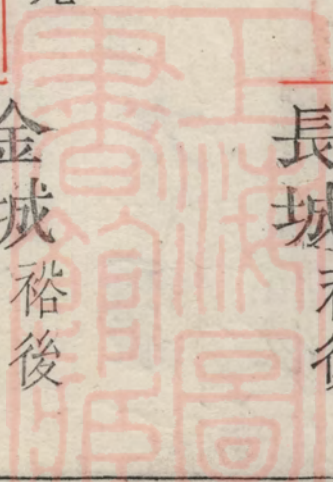 長城
金城裕後
上海圖
書館藏